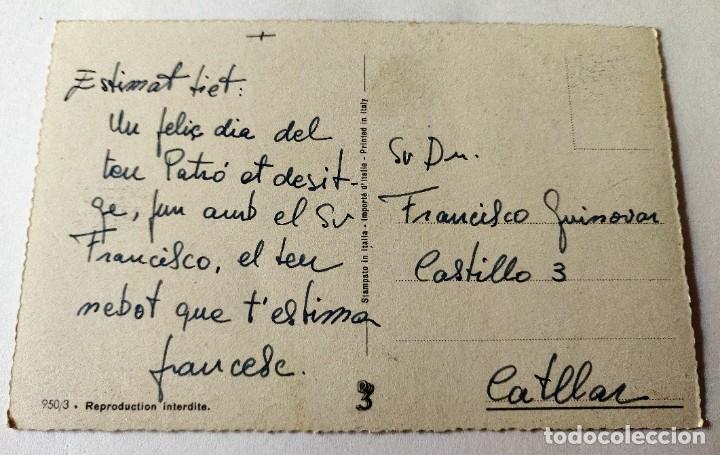 Estimat tiet:
Un feliç dia del
teu Patró et desit-
ge, jun amb el Sr
Francisco, el teu
nebot que t'estima
francesc.
950/3 - Reproduction interdite.
Stampato in Italia - Importé d'Italie - Printed in Italy
3
Sr Dn.
Francisco Guinovar
Castillo 3
Catllar
todocoleccion